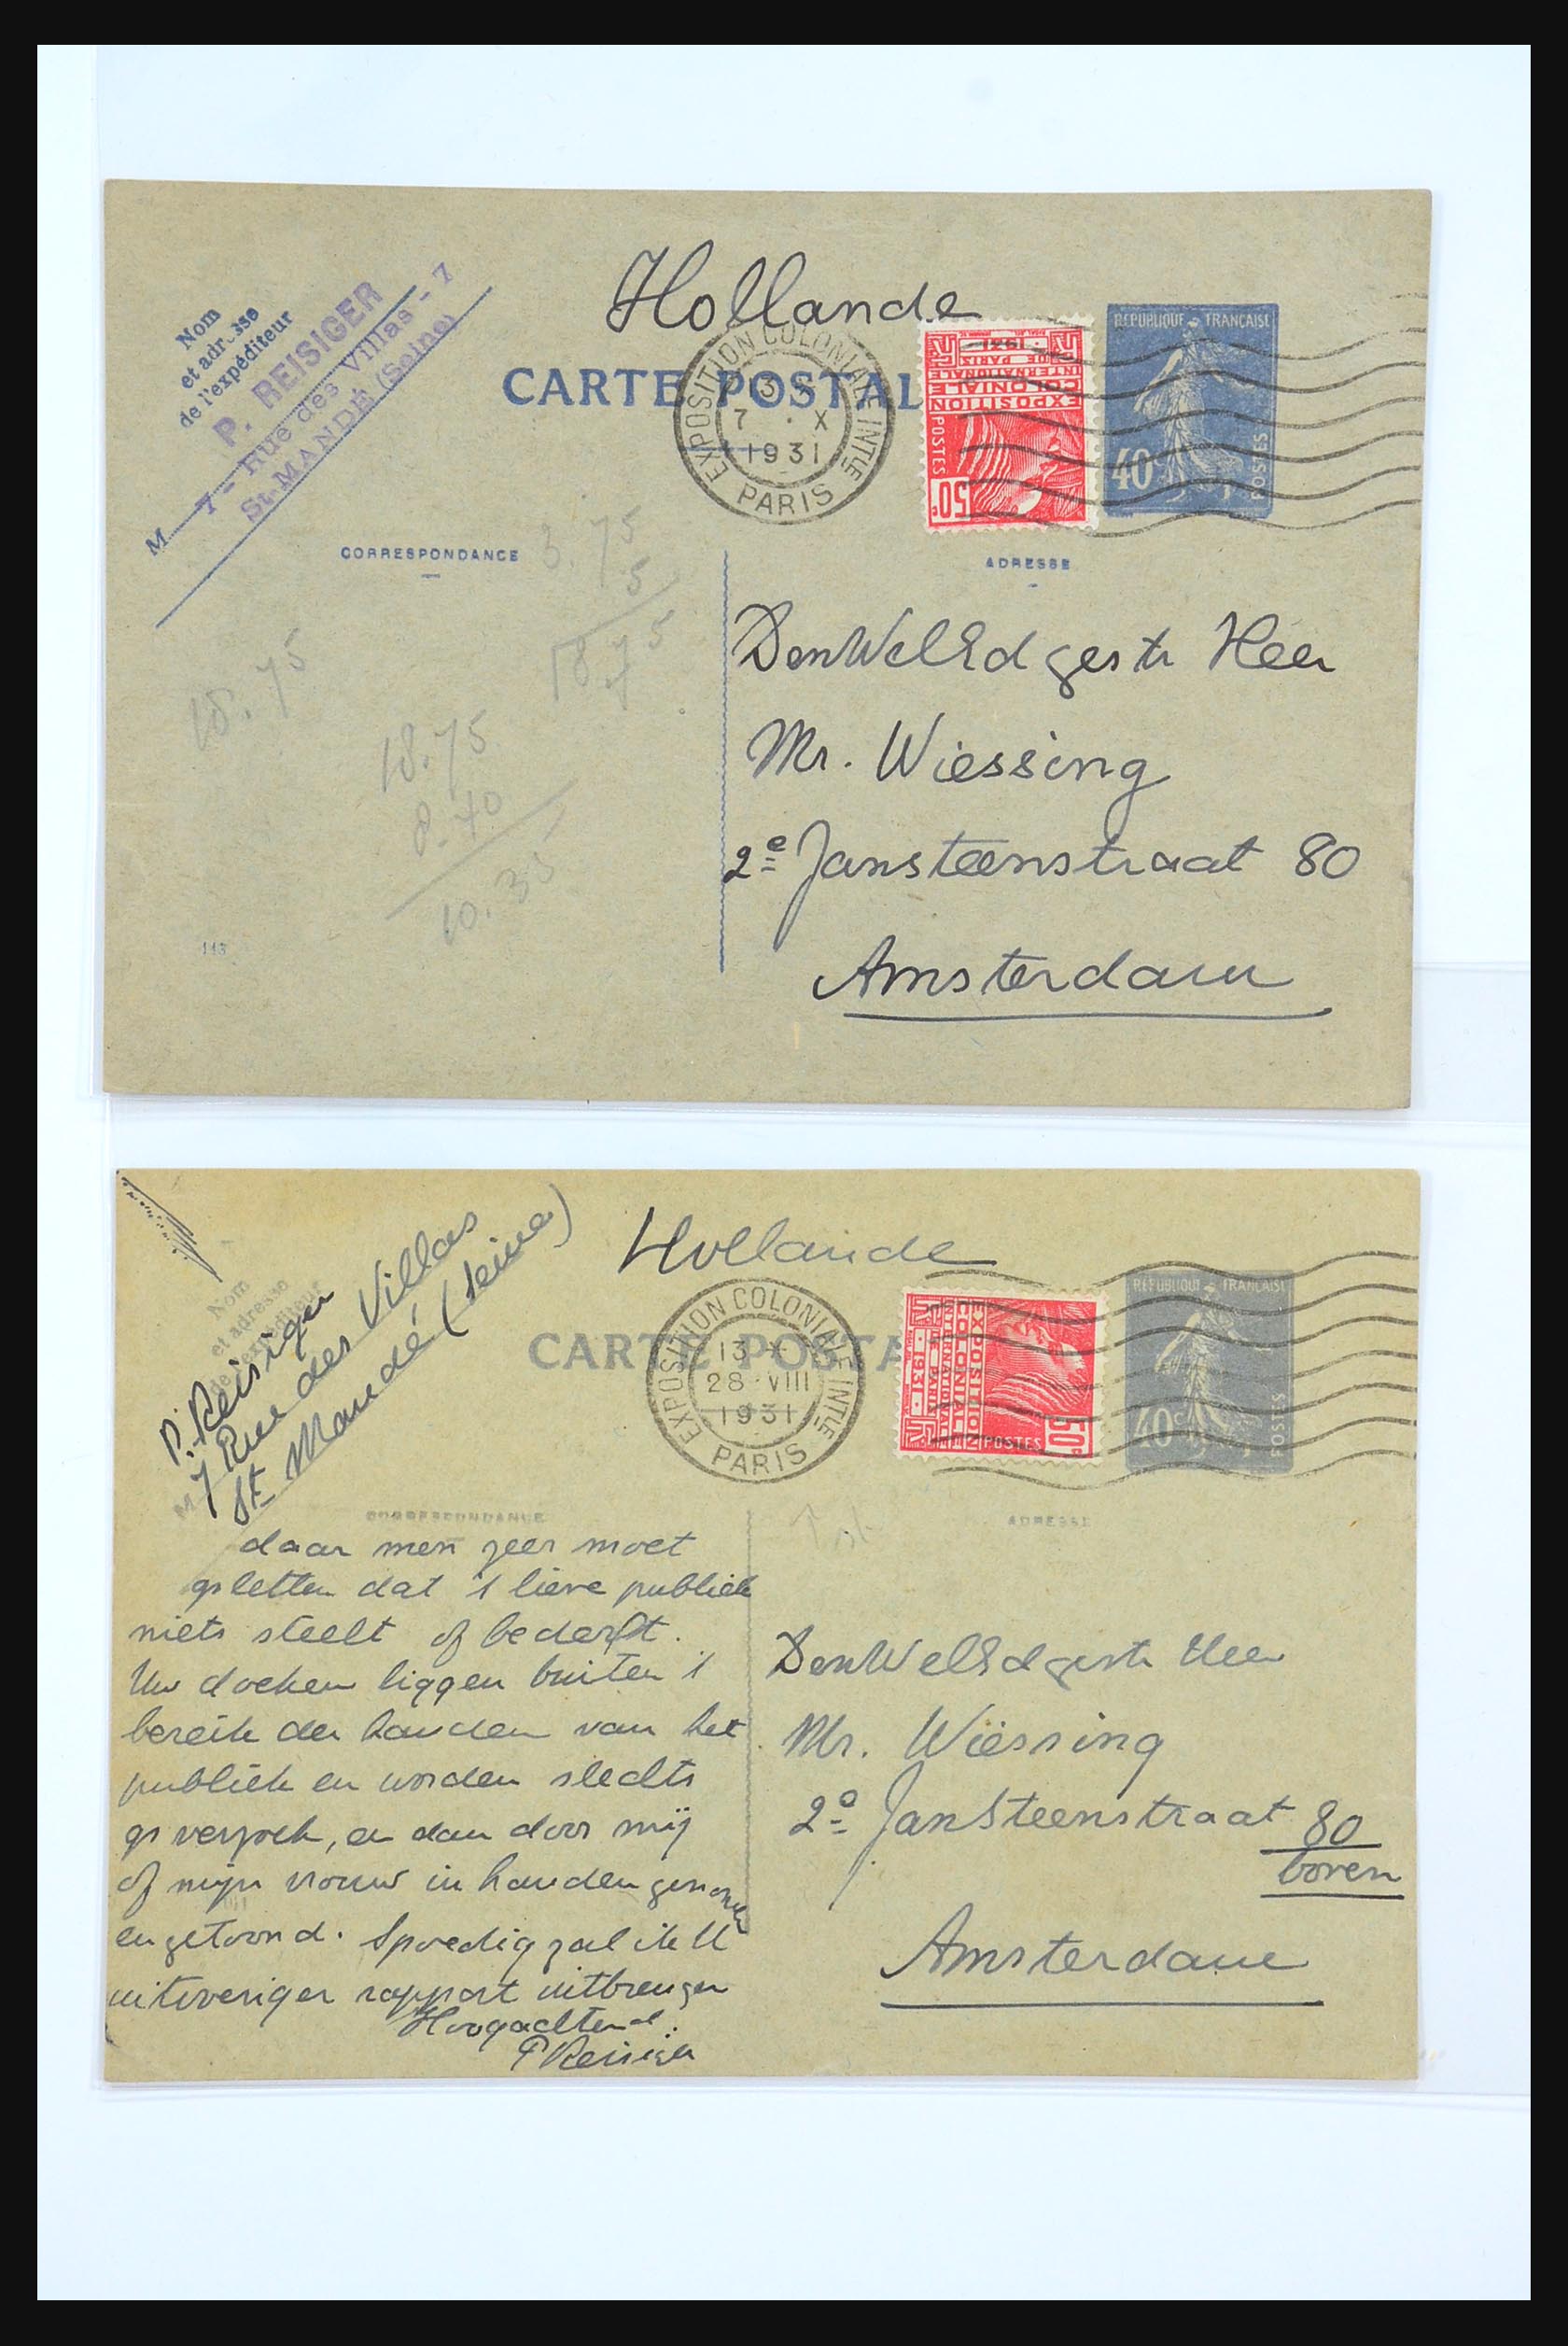 Hollande
Nom
et adresse
de l'expéditeur
P. REISIGER
M 7 - Rue des Villas - 7
St. MANDÉ (Seine)
CARTE POSTAL
EXPOSITION COLONIALE INTLE
7 · X
1931
PARIS
EXPOSITION
COLONIALE
INTERNATIONALE
DE PARIS
· 1931 ·
POSTES
50c
REPUBLIQUE FRANÇAISE
40c
POSTES
CORRESPONDANCE
ADRESSE
3.75
5
18.75
18.75
18.75
8.40
10.35
113
DenWelEdgestr Heer
Mr. Wiessing
2e Jansteenstraat 80
Amsterdam
Hollande
Nom
et adresse
de l'expéditeur
P. Reisiger
M 7 Rue des Villas
St. Mandé (Seine)
CARTE POSTA
EXPOSITION COLONIALE INTLE
13
28 · VIII
1931
PARIS
EXPOSITION
COLONIALE
INTERNATIONALE
DE PARIS
· 1931 ·
POSTES
50c
REPUBLIQUE FRANÇAISE
40c
POSTES
CORRESPONDANCE
ADRESSE
daar men zeer moet
opletten dat 't lieve publiek
niets steelt of bederft.
Uw doeken liggen buiten 't
bereik der handen van het
publiek en worden slechts
op verzoek, en dan door mij
of mijn vrouw in handen genomen
en getoond. Spoedig zal ik U
uitvoeriger rapport uitbrengen
Hoogachtend.
P Reisiger
DenWelEdgestr Heer
Mr. Wiessing
2e JanSteenstraat 80
boven
Amsterdam